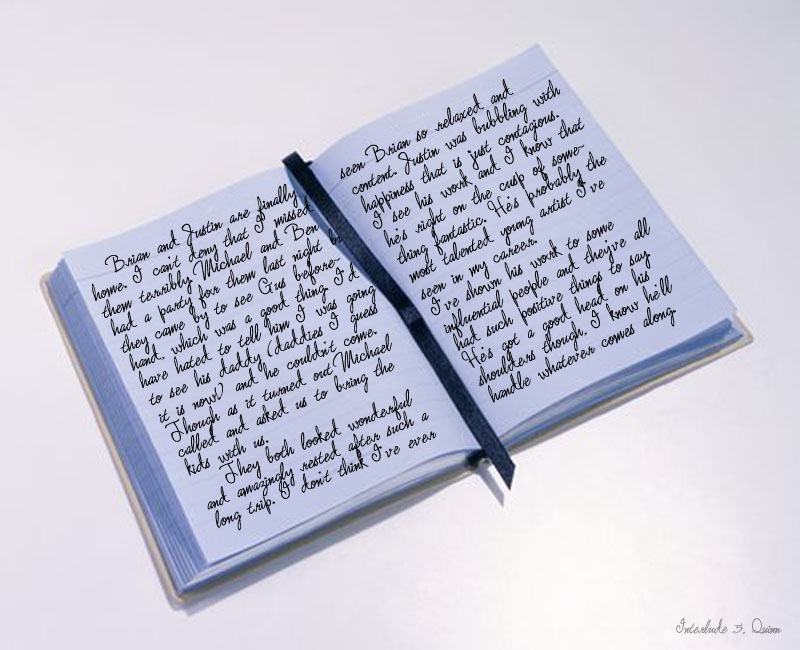 Brian and Justin are finally
home. I can't deny that I missed
them terribly. Michael and Ben
had a party for them last night but
they came by to see Gus before-
hand, which was a good thing I'd
have hated to tell him I was going
to see his daddy (daddies I guess
it is now!) and he couldn't come.
Though as it turned out Michael
called and asked us to bring the
kids with us.
They both looked wonderful
and amazingly rested after such a
long trip. I don't think I've ever
seen Brian so relaxed and
content. Justin was bubbling with
happiness that is just contagious.
I see his work and I know that
he's right on the cusp of some-
thing fantastic. He's probably the
most talented young artist I've
seen in my career.
I've shown his work to some
influential people and they've all
had such positive things to say
He's got a good head on his
shoulders though. I know he'll
handle whatever comes along
Interlude 5, Quinn